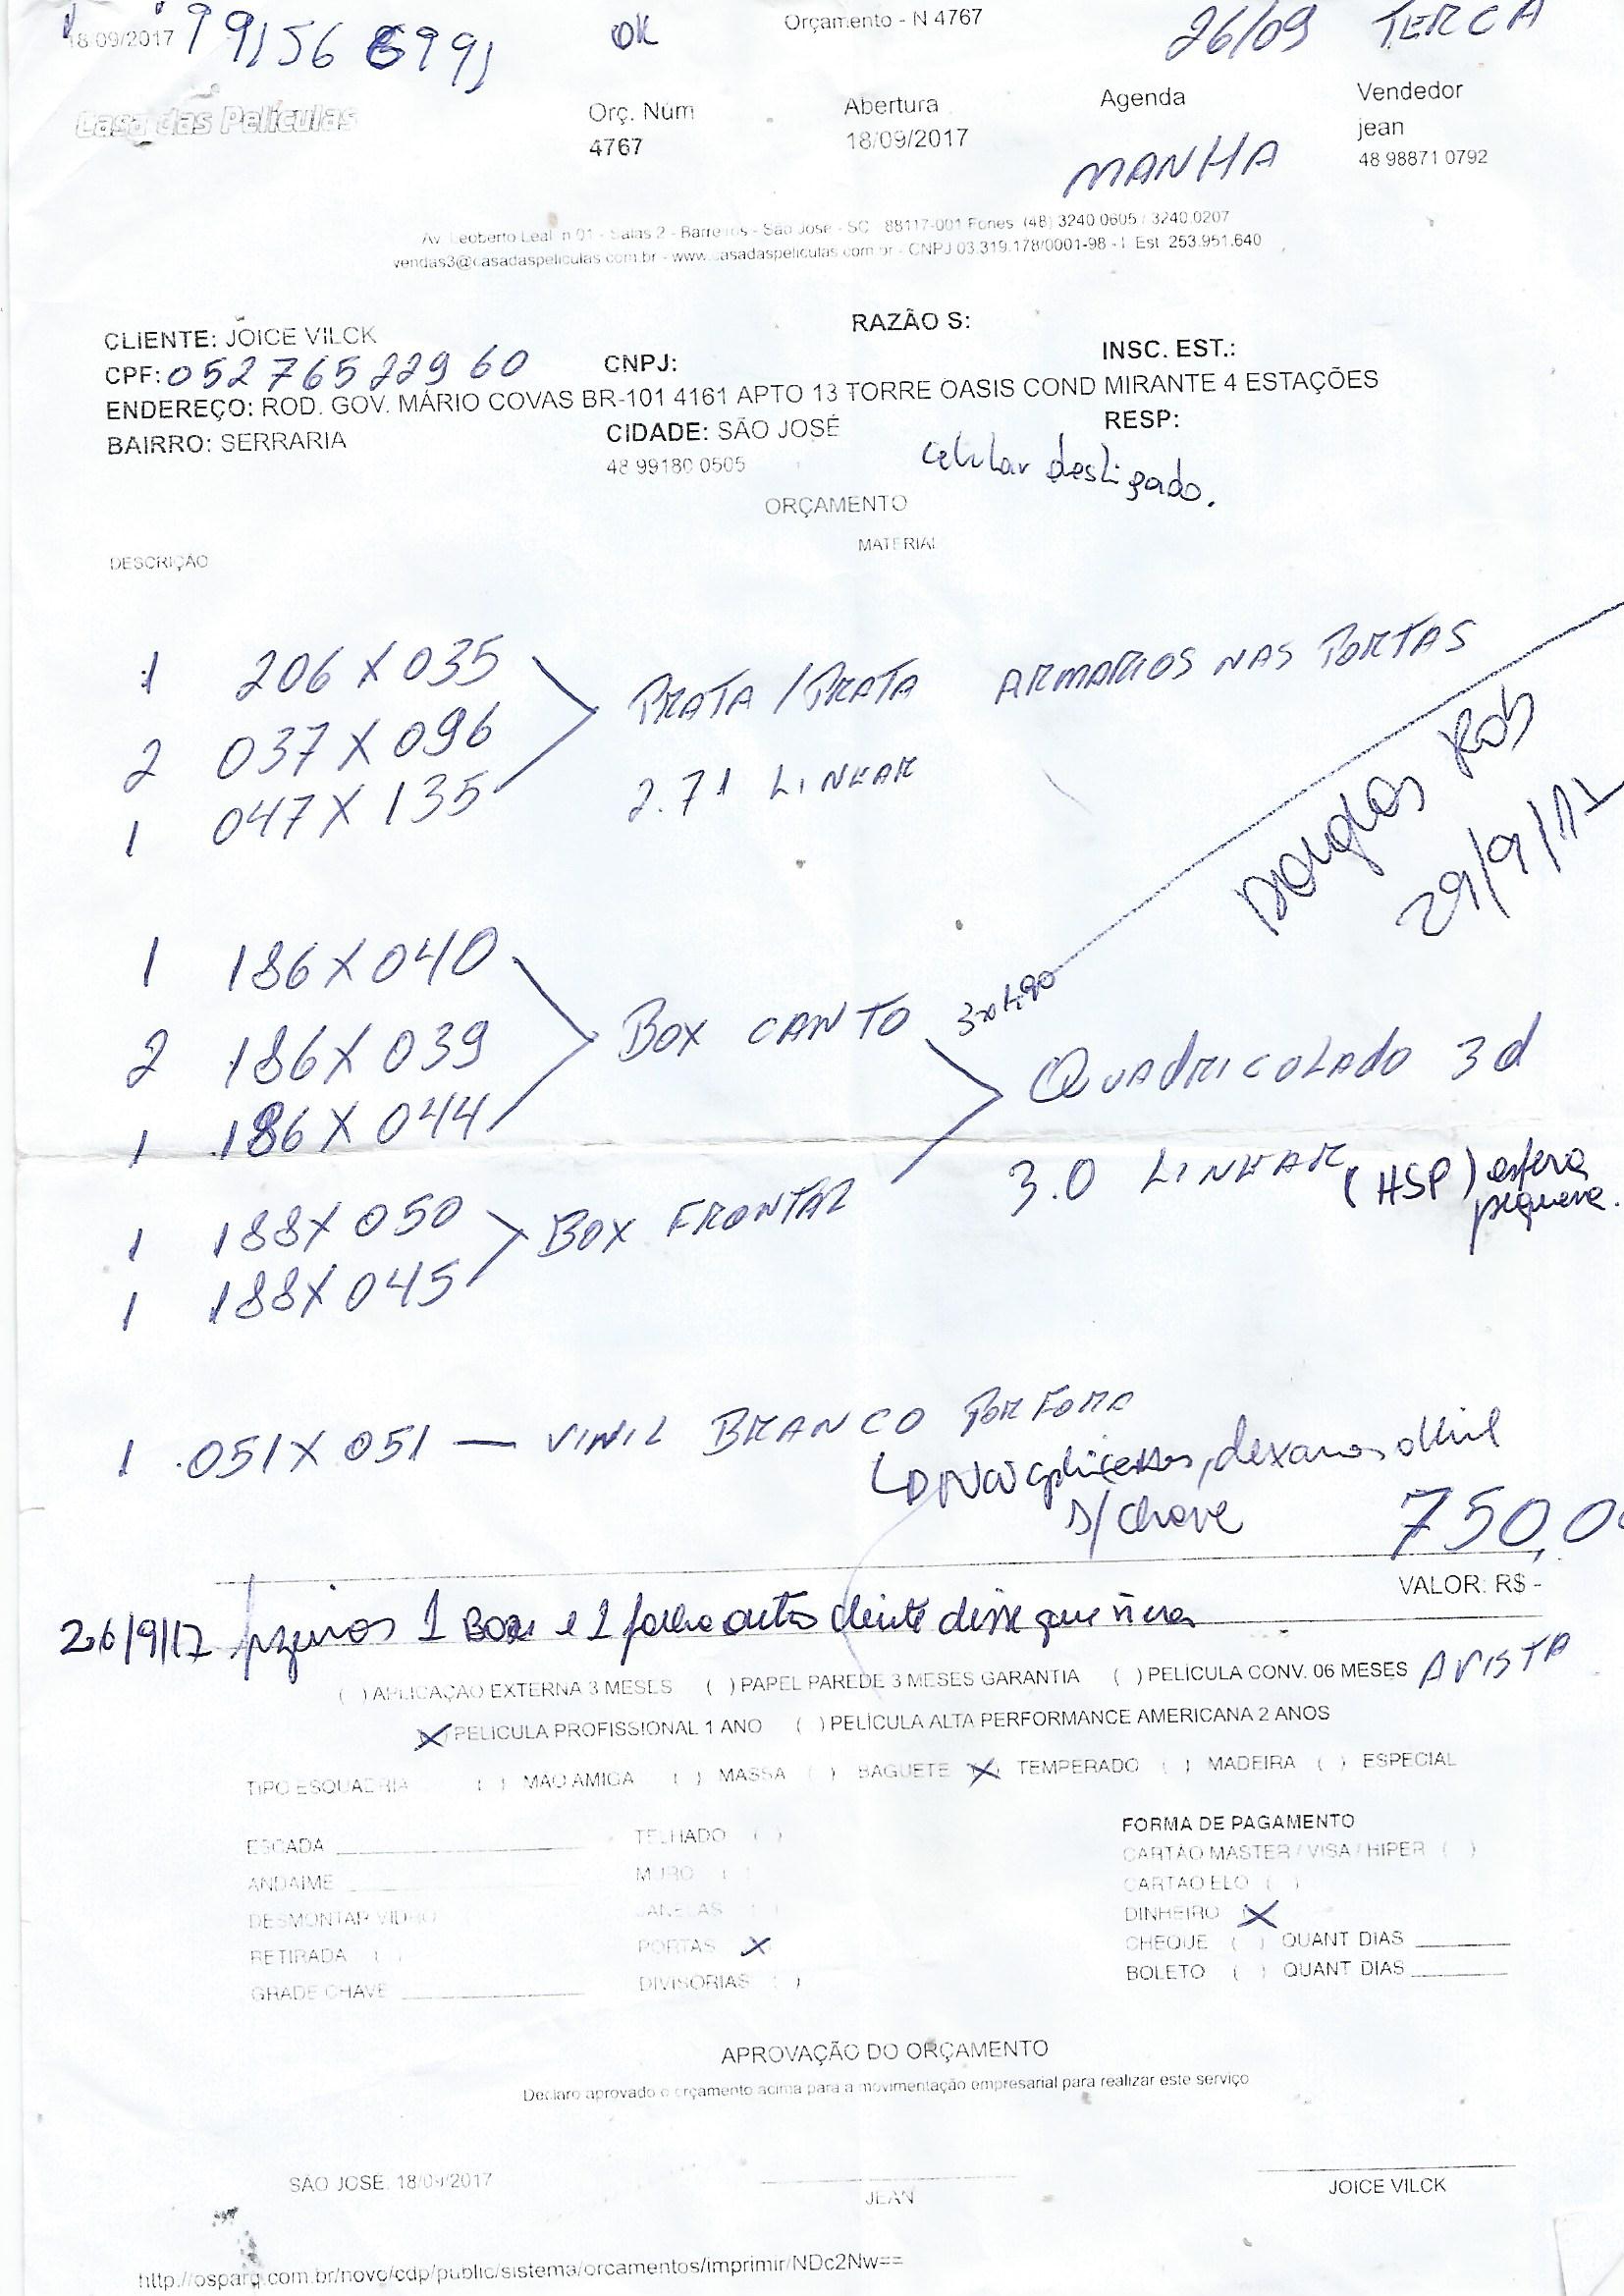 18/09/2017 99156 6991 OK Orçamento - N 4767 26/09 TERCA
Casa das Películas Orç. Núm Abertura Agenda Vendedor
4767 18/09/2017 MANHA jean
48 98871 0792
Av. Leoberto Leal, n 01 - Salas 2 - Barreiros - São José - SC 88117-001 Fones (48) 3240.0605 / 3240.0207
vendas3@casadaspeliculas.com.br - www.casadaspeliculas.com.br - CNPJ 03.319.178/0001-98 - I. Est. 253.951.640
CLIENTE: JOICE VILCK RAZÃO S:
CPF: 052 765 229 60 CNPJ: INSC. EST.:
ENDEREÇO: ROD. GOV. MÁRIO COVAS BR-101 4161 APTO 13 TORRE OASIS COND MIRANTE 4 ESTAÇÕES
BAIRRO: SERRARIA CIDADE: SÃO JOSÉ RESP:
48 99180 0505 celular desligado.
ORÇAMENTO
DESCRIÇÃO MATERIAL
1 206 X 035 PRATA / PRATA ARMARIOS NAS PORTAS
2 037 X 096
1 047 X 135 2.71 LINEAR
Douglas
29/9/17
1 186 X 040
2 186 X 039 BOX CANTO
1 186 X 044 QUADRICOLADO 3d
3.0 LINEAR (HSP) esfera pequena.
1 188 X 050 BOX FRONTAL
1 188 X 045
1 051 X 051 — VINIL BRANCO POR FORA
s/ chave
750,0
VALOR: R$ -
26/9/17 fizemos 1 Box e 1 outro cliente disse que
( ) APLICAÇÃO EXTERNA 3 MESES ( ) PAPEL PAREDE 3 MESES GARANTIA ( ) PELÍCULA CONV. 06 MESES AVISTA
(X) PELICULA PROFISSIONAL 1 ANO ( ) PELÍCULA ALTA PERFORMANCE AMERICANA 2 ANOS
TIPO ESQUADRIA ( ) MAO AMIGA ( ) MASSA ( ) BAGUETE (X) TEMPERADO ( ) MADEIRA ( ) ESPECIAL
ESCADA TELHADO ( ) FORMA DE PAGAMENTO
ANDAIME MURO ( ) CARTÃO MASTER / VISA / HIPER ( )
DESMONTAR VIDRO JANELAS ( ) CARTAO ELO ( )
RETIRADA ( ) PORTAS X DINHEIRO X
GRADE CHAVE DIVISORIAS ( ) CHEQUE ( ) QUANT DIAS
BOLETO ( ) QUANT DIAS
APROVAÇÃO DO ORÇAMENTO
Declaro aprovado o orçamento acima para a movimentação empresarial para realizar este serviço
SÃO JOSÉ, 18/09/2017 JEAN JOICE VILCK
http://osparq.com.br/novo/cdp/public/sistema/orcamentos/imprimir/NDc2Nw==